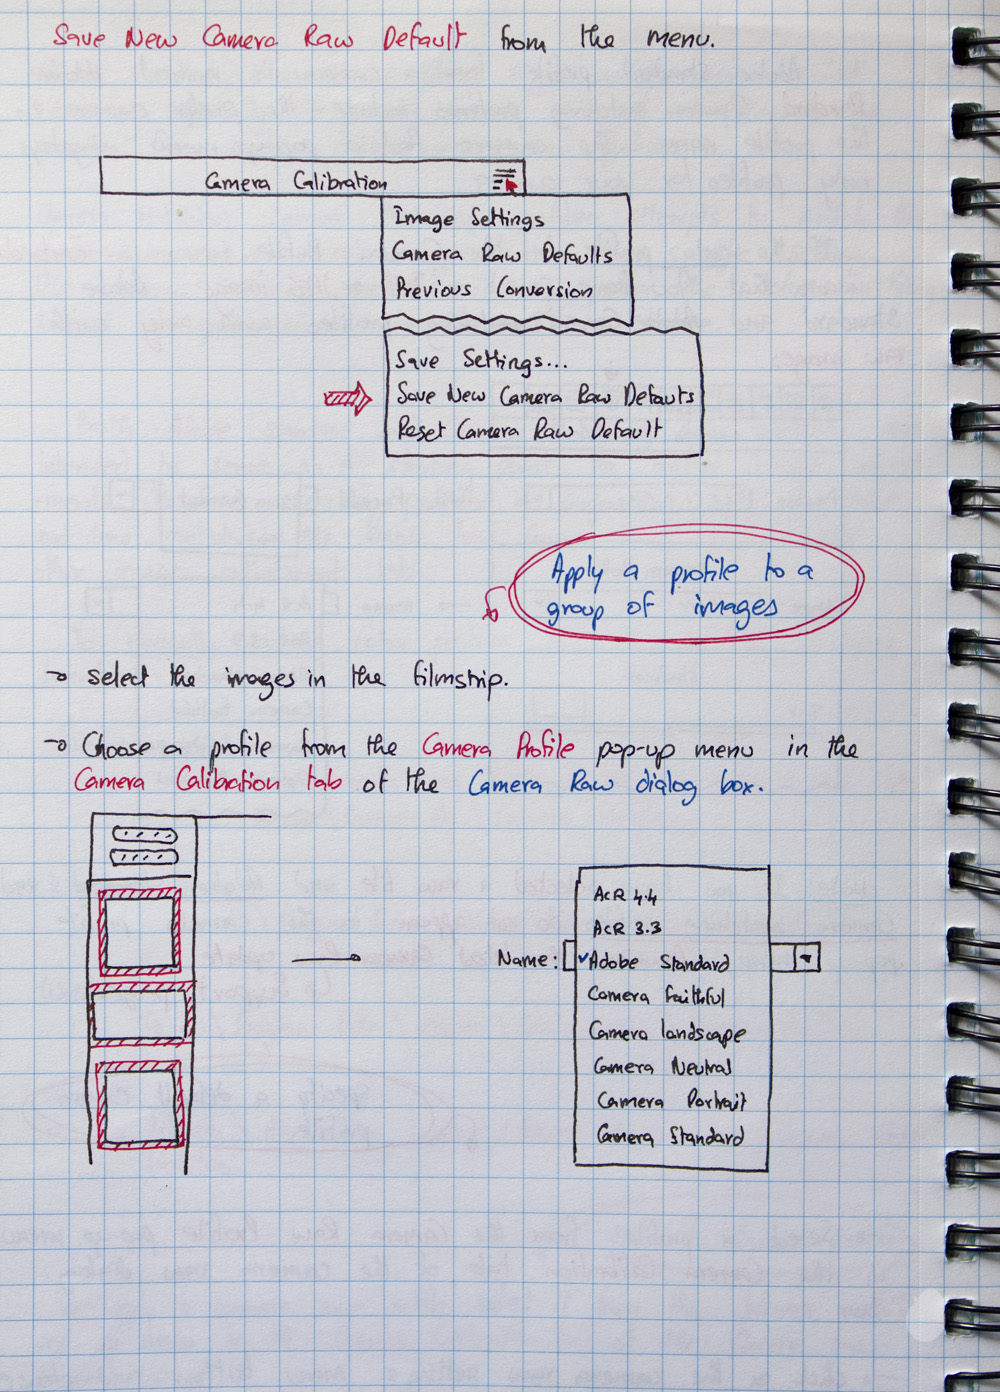 Save New Camera Raw Default from the menu.
Camera Calibration
Image Settings
Camera Raw Defaults
Previous Conversion
Save Settings...
Save New Camera Raw Defauts
Reset Camera Raw Default
Apply a profile to a
group of images
→ select the images in the filmstrip.
→ Choose a profile from the Camera Profile pop-up menu in the
Camera Calibration tab of the Camera Raw dialog box.
ACR 4.4
ACR 3.3
Name: ✓Adobe Standard
Camera Faithful
Camera landscape
Camera Neutral
Camera Portrait
Camera Standard